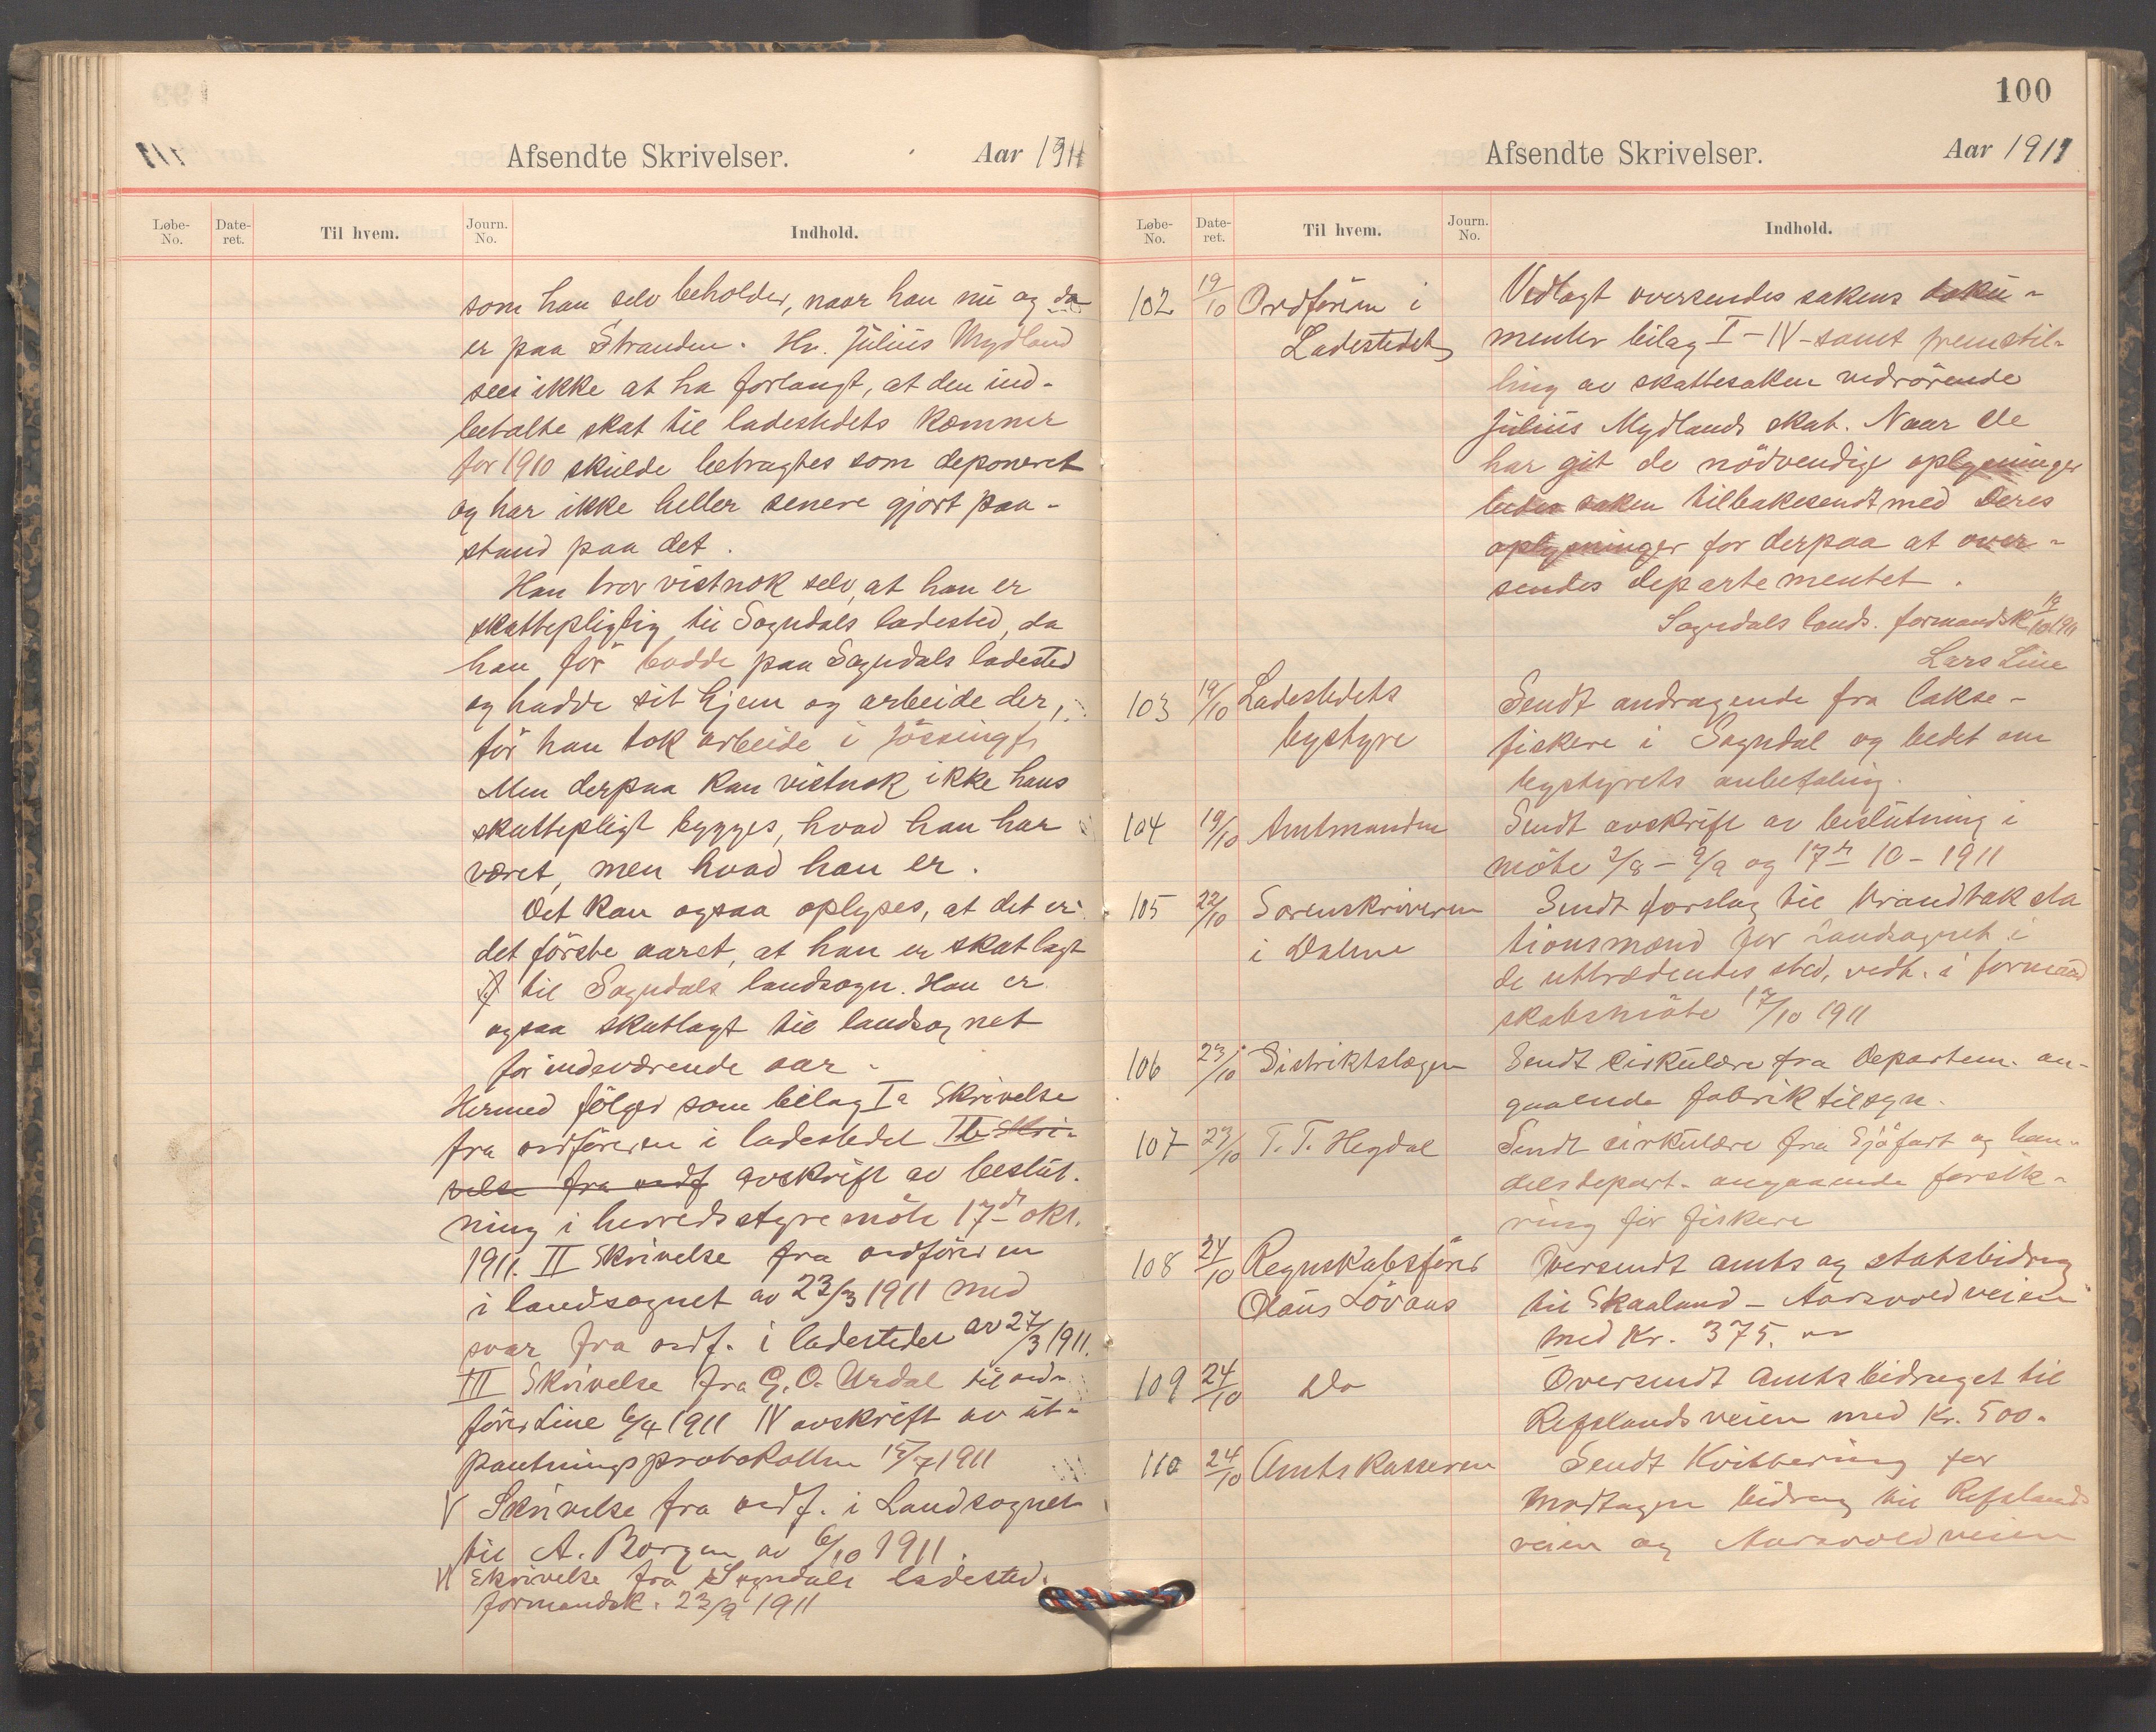 Afsendte Skrivelser. Aar 1911
Løbe-No. Date-ret. Til hvem. Journ. No. Indhold.
som han selv beholder, naar han nu og da
er paa Stranden. Hr. Julius Mydland
sees ikke at ha forlangt, at den ind-
betalte skat til ladestedets kæmner
for 1910 skulde betragtes som deponeret
og har ikke heller senere gjort paa-
stand paa det.
Han tror vistnok selv, at han er
skattepligtig til Sogndals ladested, da
han før bodde paa Sogndals ladested
og hadde sit hjem og arbeide der,
før han tok arbeide i Jössingfj.
Men derpaa kan vistnok ikke hans
skattepligt bygges, hvad han har
været, men hvad han er.
Det kan ogsaa oplyses, at det er
det förste aaret, at han er skatlagt
til Sogndals landsogn. Han er
ogsaa skatlagt til landsognet
for indeværende aar.
Hermed følger som bilag Ia Skrivelse
fra ordføreren i ladestedet Ib Skri-
velse fra ordf avskrift av beslut-
ning i herredsstyremöte 17de okt.
1911. II Skrivelse fra ordføreren
i landsognet av 23/3 1911 med
svar fra ordf. i ladestedet av 27/3 1911.
III Skrivelse fra G. O. Urdal til ord-
fører Line 6/4 1911 IV avskrift av ut-
pantningsprotokollen 15/7 1911
V Skrivelse fra ordf. i Landsognet
til A. Borgen av 6/10 1911.
VI Skrivelse fra Sogndals ladested.
formandsk. 23/9 1911
100
Afsendte Skrivelser. Aar 1911
Løbe-No. Date-ret. Til hvem. Journ. No. Indhold.
102 19/10 Ordføreren i Vedlagt oversendes sakens doku-
Ladestedet menter bilag I-IV-samt fremstil-
ling av skattesaken vedrörende
Julius Mydlands skat. Naar De
har git de nödvendige oplysninger
bedes saken tilbakesendt med Deres
oplysninger for derpaa at over-
sendes departementet.
Sogndals lands. formandsk 19/10 1911
Lars Line
103 19/10 Ladestedets Sendt andragende fra lakse-
bystyre fiskere i Sogndal og bedet om
bystyrets anbefaling.
104 19/10 Amtmanden Sendt avskrift av beslutning i
möte 2/8 - 9/9 og 17de 10 - 1911
105 22/10 Sorenskriveren Sendt forslag til brandtaksta
i Dalene tionsmænd for landsognet i
de uttrædendes sted, vedt. i formand
skabsmöte 17/10 1911
106 23/10 Distriktslægen Sendt cirkulære fra Departem. an-
gaaende fabriktilsyn.
107 23/10 T. T. Hegdal Sendt cirkulære fra Sjöfart og han-
delsdepart. angaaende forsik-
ring for fiskere
108 24/10 Regnskabsfører Oversendt amts og statsbidrag
Olaus Lövaas til Skaaland - Aarsvoldveien
med Kr. 375.
109 24/10 Do Oversendt Amtsbidraget til
Refslandsveien med Kr. 500.
110 24/10 Amtskasseren Sendt Kvittering for
modtagen bidrag til Refslands
veien og Aarsvoldveien